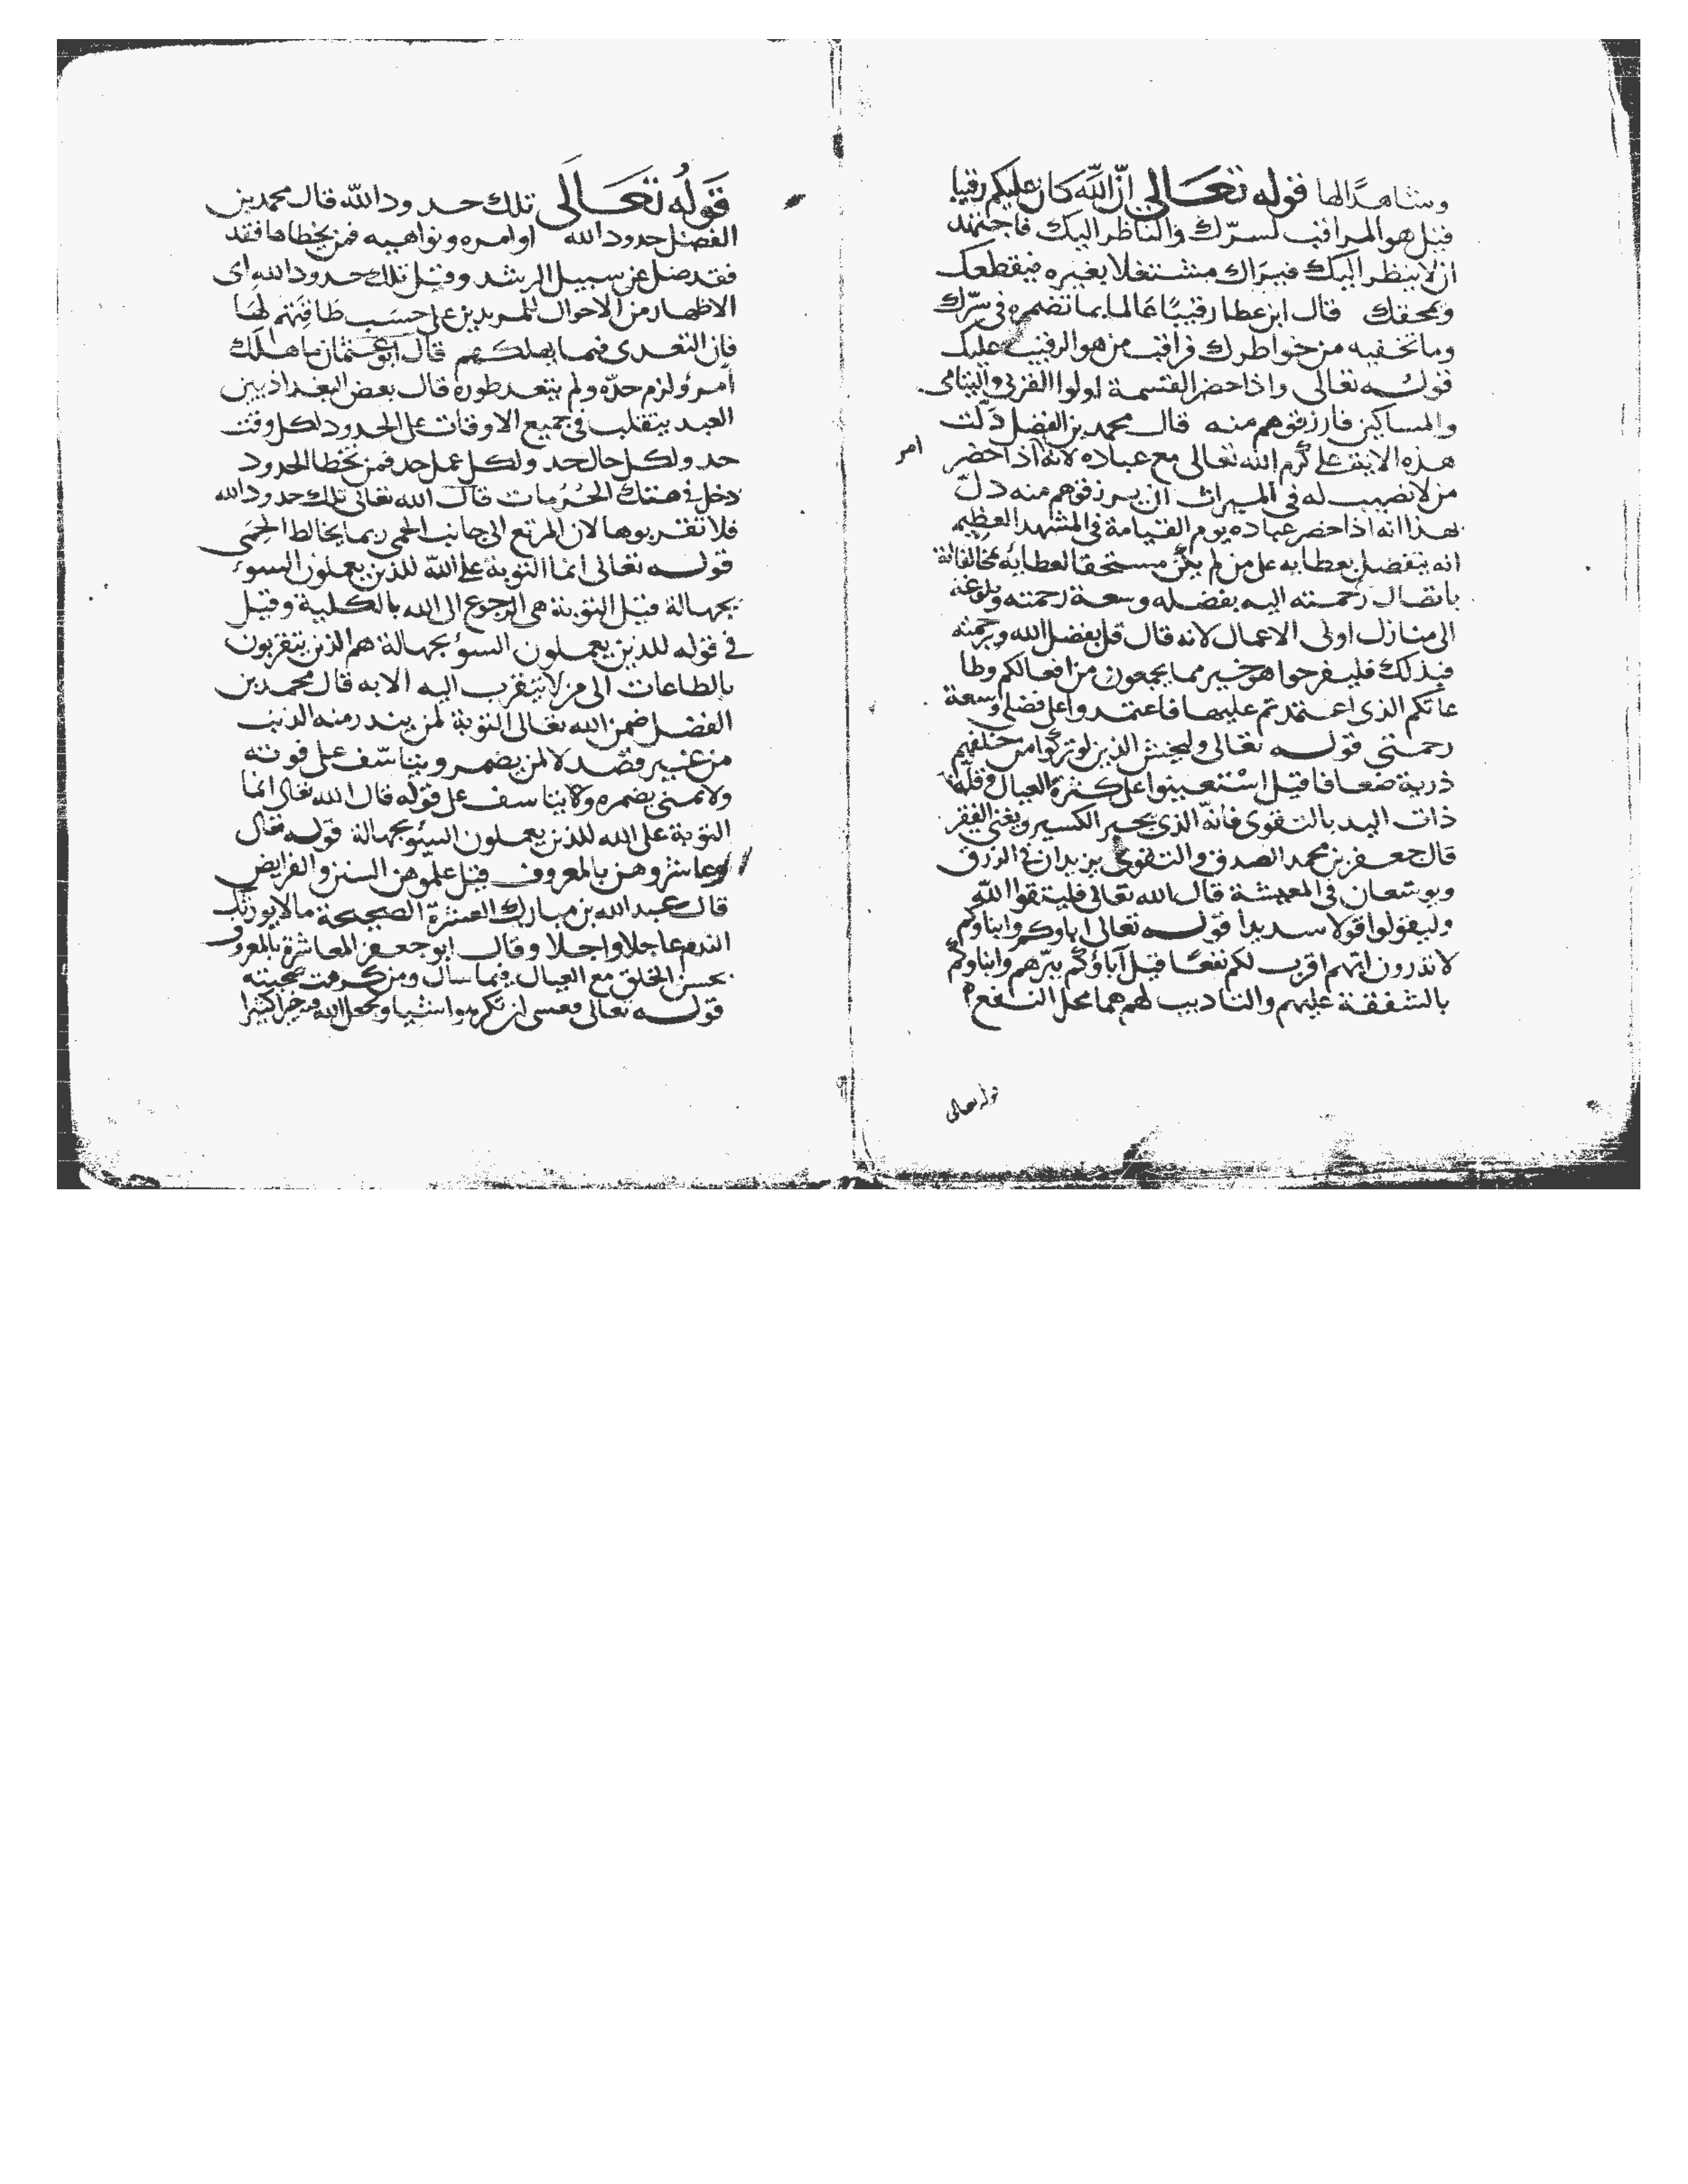 وشاهدًا لها قوله تعالى انّ الله كان عليكم رقيبا
قيل هو المراقب لسرّك والناظر اليك فاجتهد
ان لا ينظر اليك فيراك مشتغلا بغيره فيقطعك
ويمحقك قال ابن عطا رقيبًا عَالما بما تضمره في سرّك
وما تخفيه من خواطرك فراقب من هو الرقيب عليك
قوله تعالى واذا حضر القسمة اولوا القربى واليتامى
والمساكين فارزقوهم منه قال محمد بن الفضل دلّت
هذه الاية على كرم الله تعالى مع عباده لانه اذا حضر
امر
من لا نصيب له في الميراث ان يرزقوهم منه دلّ
هذا انه اذا حضر عباده يوم القيامة في المشهد العظيم
انه يتفضل بعطايه على من لم يكن مستحقا لعطايه مخالفاته
باتصال رحمته اليه بفضله وسعة رحمته وبلوغه
الى منازل اولى الاعمال لانه قال قل بفضل الله وبرحمته
فبذلك فليفرحوا هو خير مما يجمعون من افعالكم وطا
عاتكم الذى اعتمدتم عليها فاعتمدوا على فضلى وسعة
رحمتى قوله تعالى وليخش الذين لو تركوا من خلفهم
ذرية ضعافا قيل استعينوا على كثرة العيال وقلة
ذات اليد بالتقوى فانّه الذى يجبر الكسير ويغنى الفقير
قال جعفر بن محمد الصدق والتقوى يزيدان في الرزق
ويوسعان في المعيشة قال الله تعالى فليتقوا الله
وليقولوا قولا سديدا قوله تعالى اباوكم وابناوكم
لا تدرون ايهم اقرب لكم نفعًا قيل آباؤكم ببرّهم وابناوكم
بالشفقة عليهم والتاديب لهم هما محل النفع
قوله تعالى
قَولُه تَعَالَى تلك حدود الله قال محمد بن
الفضل حدود الله اوامره ونواهيه فمن يخطاها فقد
فقد ضل عن سبيل الرشد وقيل تلك حدود الله اى
الاظهار من الاحوال للمريدين على حسَب طَاقتهم لها
فان التعدى فيها يهلكهم قال ابو عثمان ما هلك
امرؤ لزم حدّه ولم يتعد طوره قال بعض البغداذيين
العبد يتقلب في جميع الاوقات على الحدود لكل وقت
حد ولكل حال حد ولكل عمل حد فمن تخطا الحدود
دخل في هتك الحُرُمات قال الله تعالى تلك حدود الله
فلا تقربوها لان المرتع الى جانب الحمى ربما يخالط الحِمَى
قوله تعالى انما التوبة على اللّه للذين يعملون السوء
بجهالة قيل التوبة هى الرجوع الى الله بالكلية وقيل
في قوله للذين يعملون السوء بجهالة هم الذين يتقربون
بالطاعات الى من لا يتقرب اليه الا به قال محمد بن
الفضل ضمن الله تعالى التوبة لمن يندر منه الذنب
من غير قصد لا لمن يضمر ويتاسّف على فوته
ولا تمنى يضمره ولا يتاسف على قوله قال الله تعالى انما
التوبة على الله للذين يعملون السوء بجهالة قوله تعالى
وعاشروهن بالمعروف قيل علموهن السنن والفرايض
قال عبد الله بن مبارك العشرة الصحيحة ما لا يورثك
الندم عاجلا واجلا وقال ابو جعفر المعاشرة بالمعروف
بحسن الخلق مع العيال فيما سال ومن كرهت صحبته
قوله تعالى فعسى ان تكرهوا شيا ويجعل الله فيه خيرا كثيرا